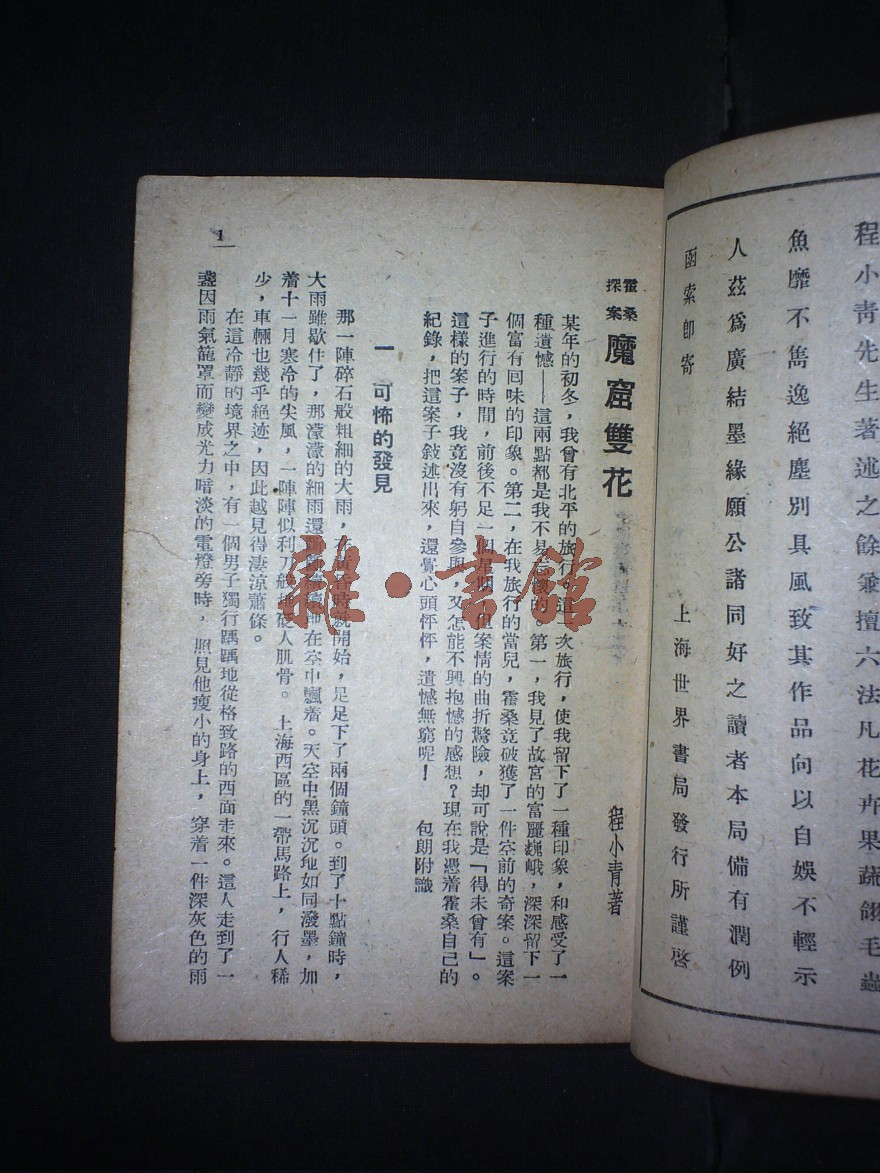 程小青先生著述之餘兼擅六法凡花卉果蔬翎毛蟲
魚靡不雋逸絕塵別具風致其作品向以自娛不輕示
人茲爲廣結墨緣願公諸同好之讀者本局備有潤例
函索卽寄
上海世界書局發行所謹啓
霍桑
探案
魔窟雙花
程小青著
某年的初冬，我曾有北平的旅行。這一次旅行，使我留下了一種印象，和感受了一
種遺憾——這兩點都是我不易忘懷的。第一，我見了故宮的富麗巍峨，深深留下一
個富有囘味的印象。第二，在我旅行的當兒，霍桑竟破獲了一件空前的奇案。這案
子進行的時間，前後不足一個星期，但案情的曲折驚險，却可說是「得未曾有」。
這樣的案子，我竟沒有躬自參與，又怎能不興抱憾的感想？現在我憑着霍桑自己的
紀錄，把這案子敍述出來，還覺心頭怦怦，遺憾無窮呢！
包朗附識
一 可怖的發見
那一陣碎石般粗細的大雨，在黃昏時就開始，足足下了兩個鐘頭。到了十點鐘時，
大雨雖歇住了，那濛濛的細雨還斷斷續續地在空中飄着。天空中黑沉沉地如同潑墨，加
着十一月寒冷的尖風，一陣陣似利刀般地砭人肌骨。上海西區的一帶馬路上，行人稀
少，車輛也幾乎絕迹，因此越見得淒涼蕭條。
在這冷靜的境界之中，有一個男子獨行踽踽地從格致路的西面走來。這人走到了一
盞因雨氣籠罩而變成光力暗淡的電燈旁時，照見他瘦小的身上，穿着一件深灰色的雨
1
雜·書館